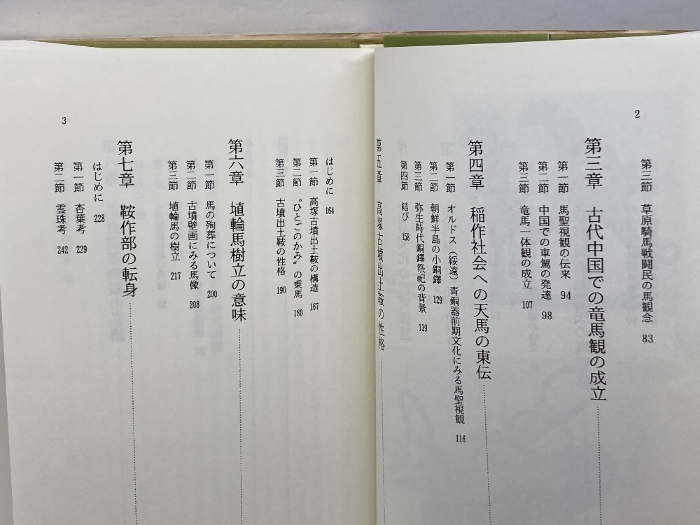 2
第三節 草原騎馬戦闘民の馬観念 83
第三章 古代中国での竜馬観の成立
第一節 馬聖視観の伝来 94
第二節 中国での車駕の発達 98
第三節 竜馬一体観の成立 107
第四章 稲作社会への天馬の東伝
第一節 オルドス(綏遠)青銅器前期文化にみる馬聖視観 116
第二節 朝鮮半島の小銅鐸 129
第三節 弥生時代銅鐸祭祀の背景 139
第四節 結び 158
第五章 高塚古墳出土鞍の性格
3
はじめに 164
第一節 高塚古墳出土鞍の構造 167
第二節 “ひとごのかみ”の乗馬 180
第三節 古墳出土鞍の性格 190
第六章 埴輪馬樹立の意味
第一節 馬の殉葬について 200
第二節 古墳壁画にみる馬像 208
第三節 埴輪馬の樹立 217
第七章 鞍作部の転身
はじめに 228
第一節 杏葉考 229
第二節 雲珠考 242